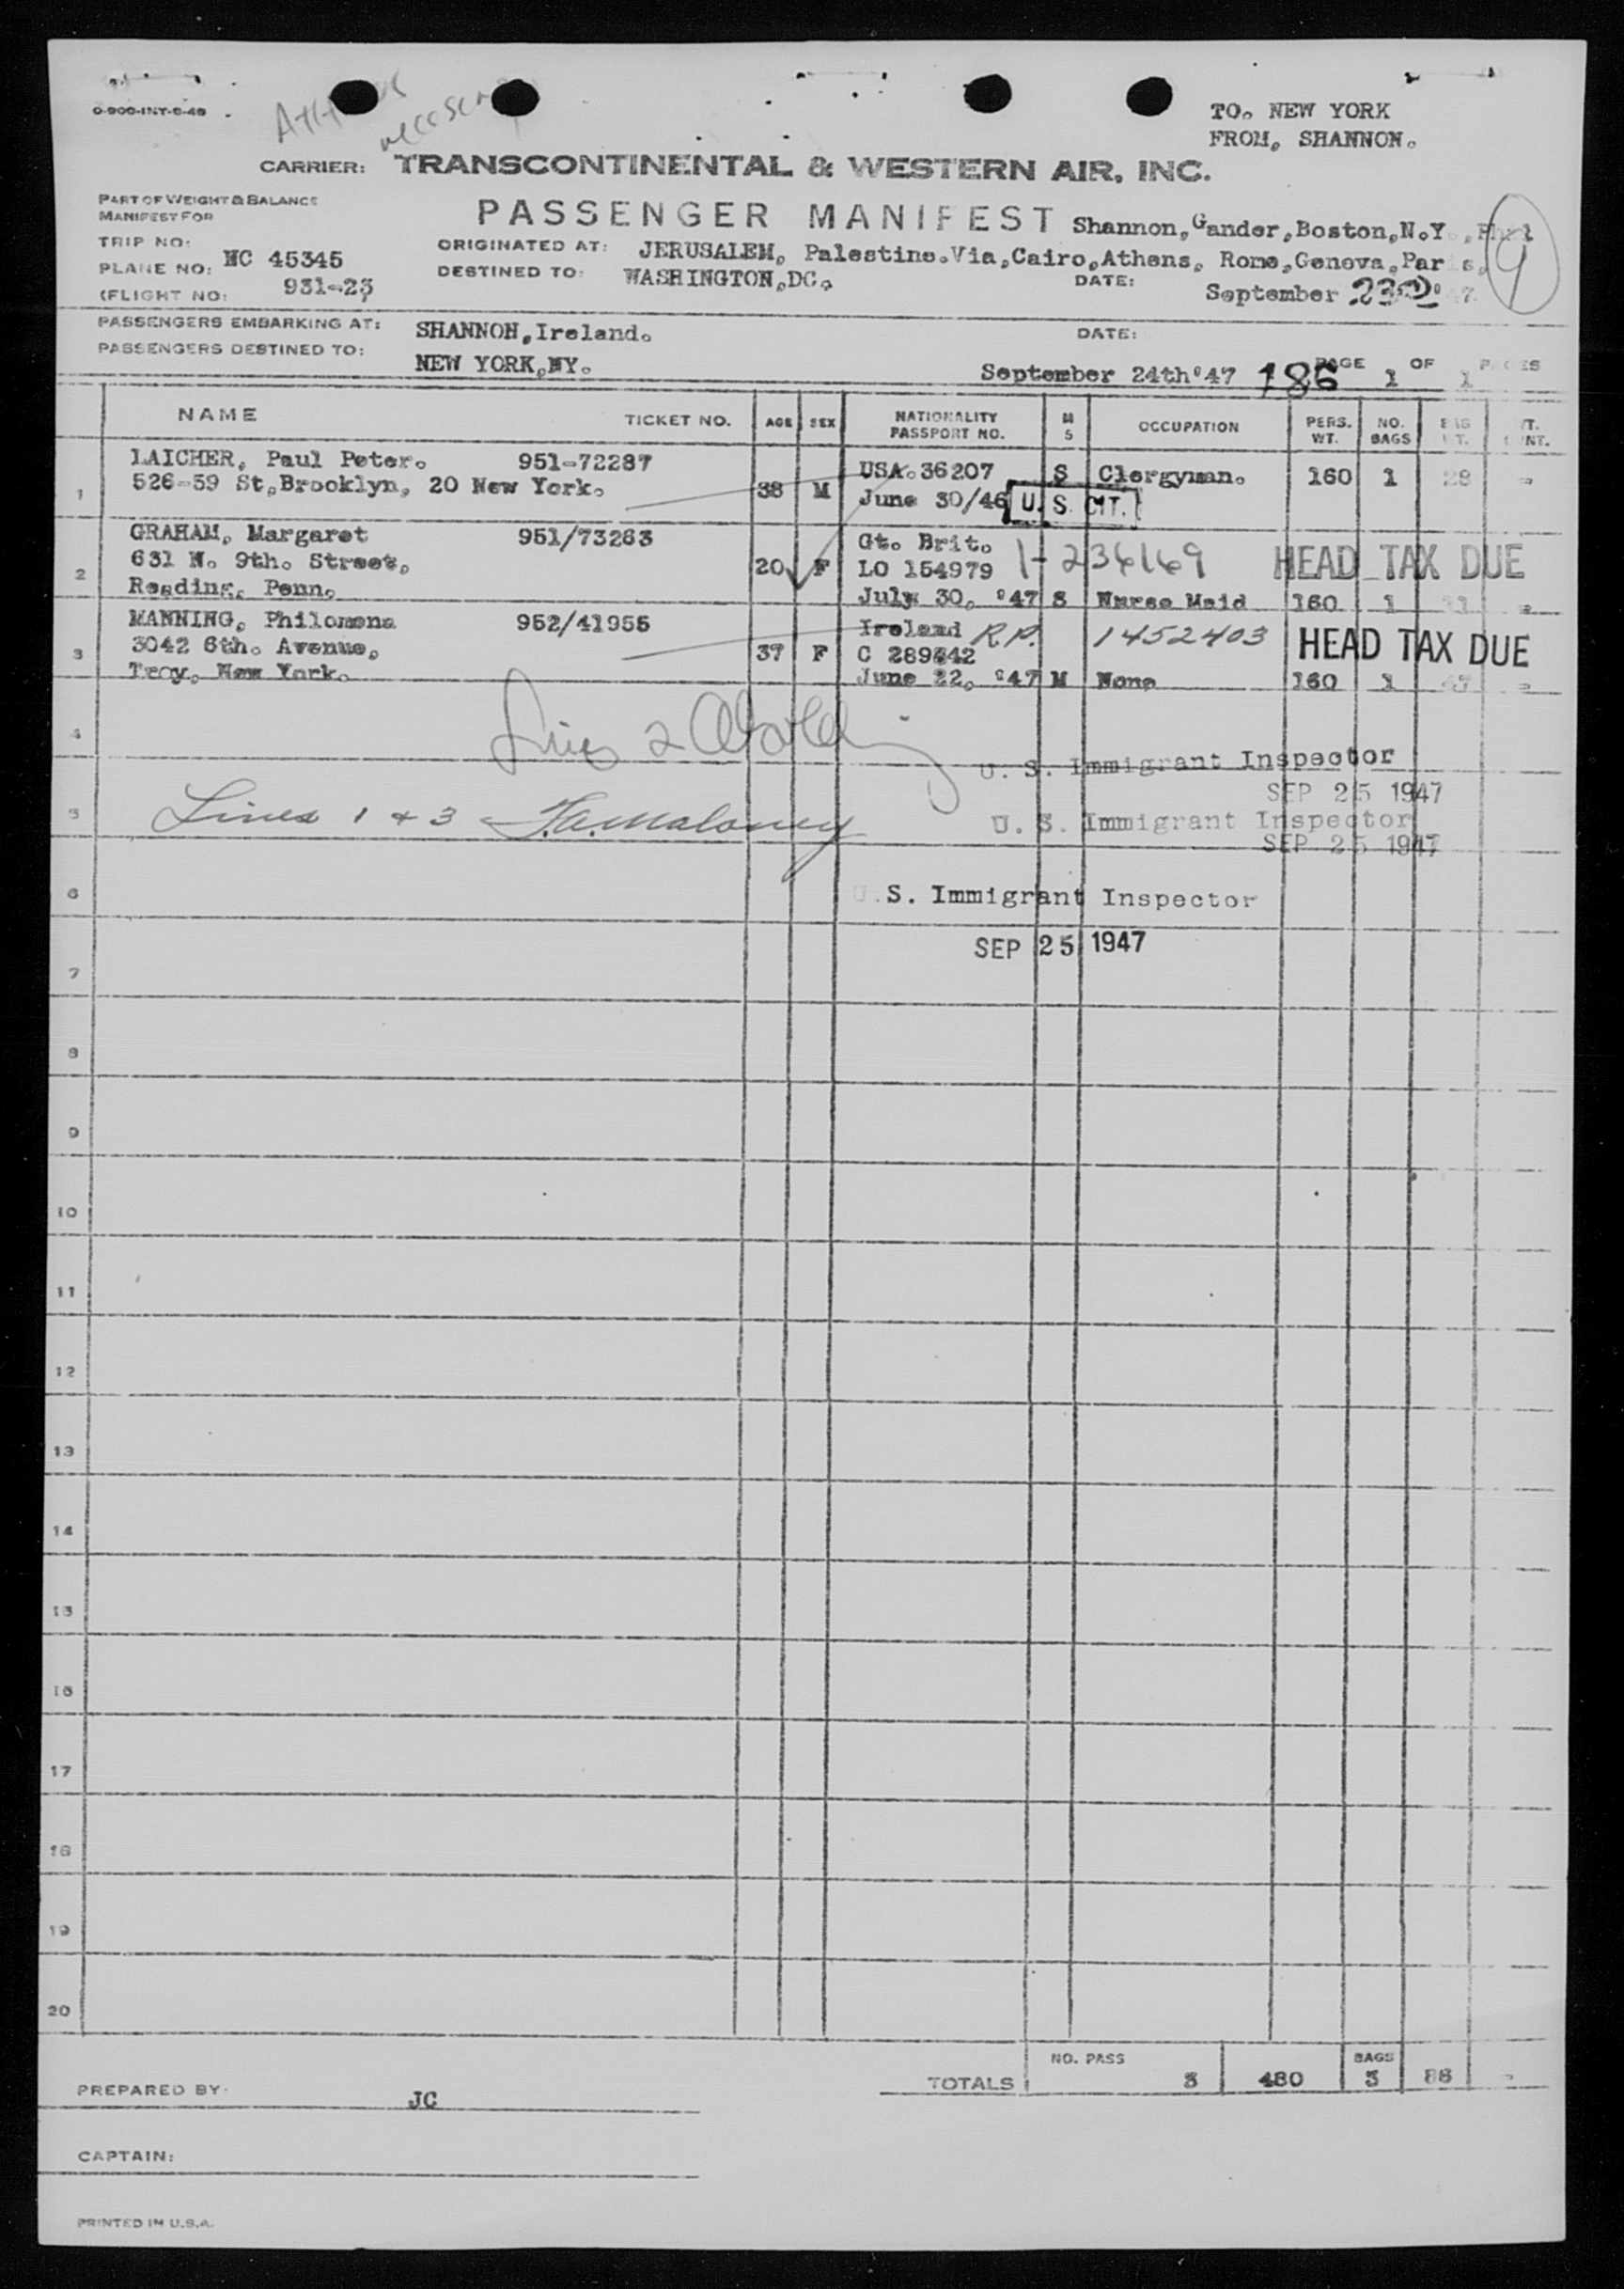 0-900-INT-6-46
TO. NEW YORK
FROM, SHANNON.
CARRIER: TRANSCONTINENTAL & WESTERN AIR, INC.
PART OF WEIGHT & BALANCE
MANIFEST FOR
PASSENGER MANIFEST Shannon,Gander,Boston,N.Y.,Phil
TRIP NO:
ORIGINATED AT: JERUSALEM, Palestine.Via,Cairo,Athens, Rome,Geneva,Paris, 9
PLANE NO: NC 45345
DESTINED TO: WASHINGTON,DC.
DATE: September 23
(FLIGHT NO: 931-23
PASSENGERS EMBARKING AT: SHANNON,Ireland.
DATE:
PASSENGERS DESTINED TO: NEW YORK,NY.
September 24th'47 186 PAGE 1 OF 1 PAGES
NAME TICKET NO. AGE SEX NATIONALITY PASSPORT NO. M S OCCUPATION PERS. WT. NO. BAGS BAG WT.
1 LAICHER, Paul Peter. 951-72287 USA.36207 S Clergyman. 160 1 28 -
526-59 St,Brooklyn, 20 New York. 38 M June 30/46 U. S. CIT.
GRAHAM, Margaret 951/73263 Gt. Brit. 1-236169 HEAD TAX DUE
2 631 N. 9th. Street, 20 F LO 154979
Reading, Penn. July 30, '47 S Nurse Maid 160 1
MANNING, Philomena 952/41955 Ireland R.P. 1452403 HEAD TAX DUE
3 3042 6th. Avenue, 37 F C 289442
Troy, New York. June 22, '47 M None 160 1
4
U. S. Immigrant Inspector
SEP 25 1947
5 Lines 1 + 3 F.A. Maloney U. S. Immigrant Inspector
SEP 25 1947
6 U.S. Immigrant Inspector
SEP 25 1947
7
8
9
10
11
12
13
14
15
16
17
18
19
20
NO. PASS BAGS
TOTALS 3 480 3 88 -
PREPARED BY: JC
CAPTAIN:
PRINTED IN U.S.A.